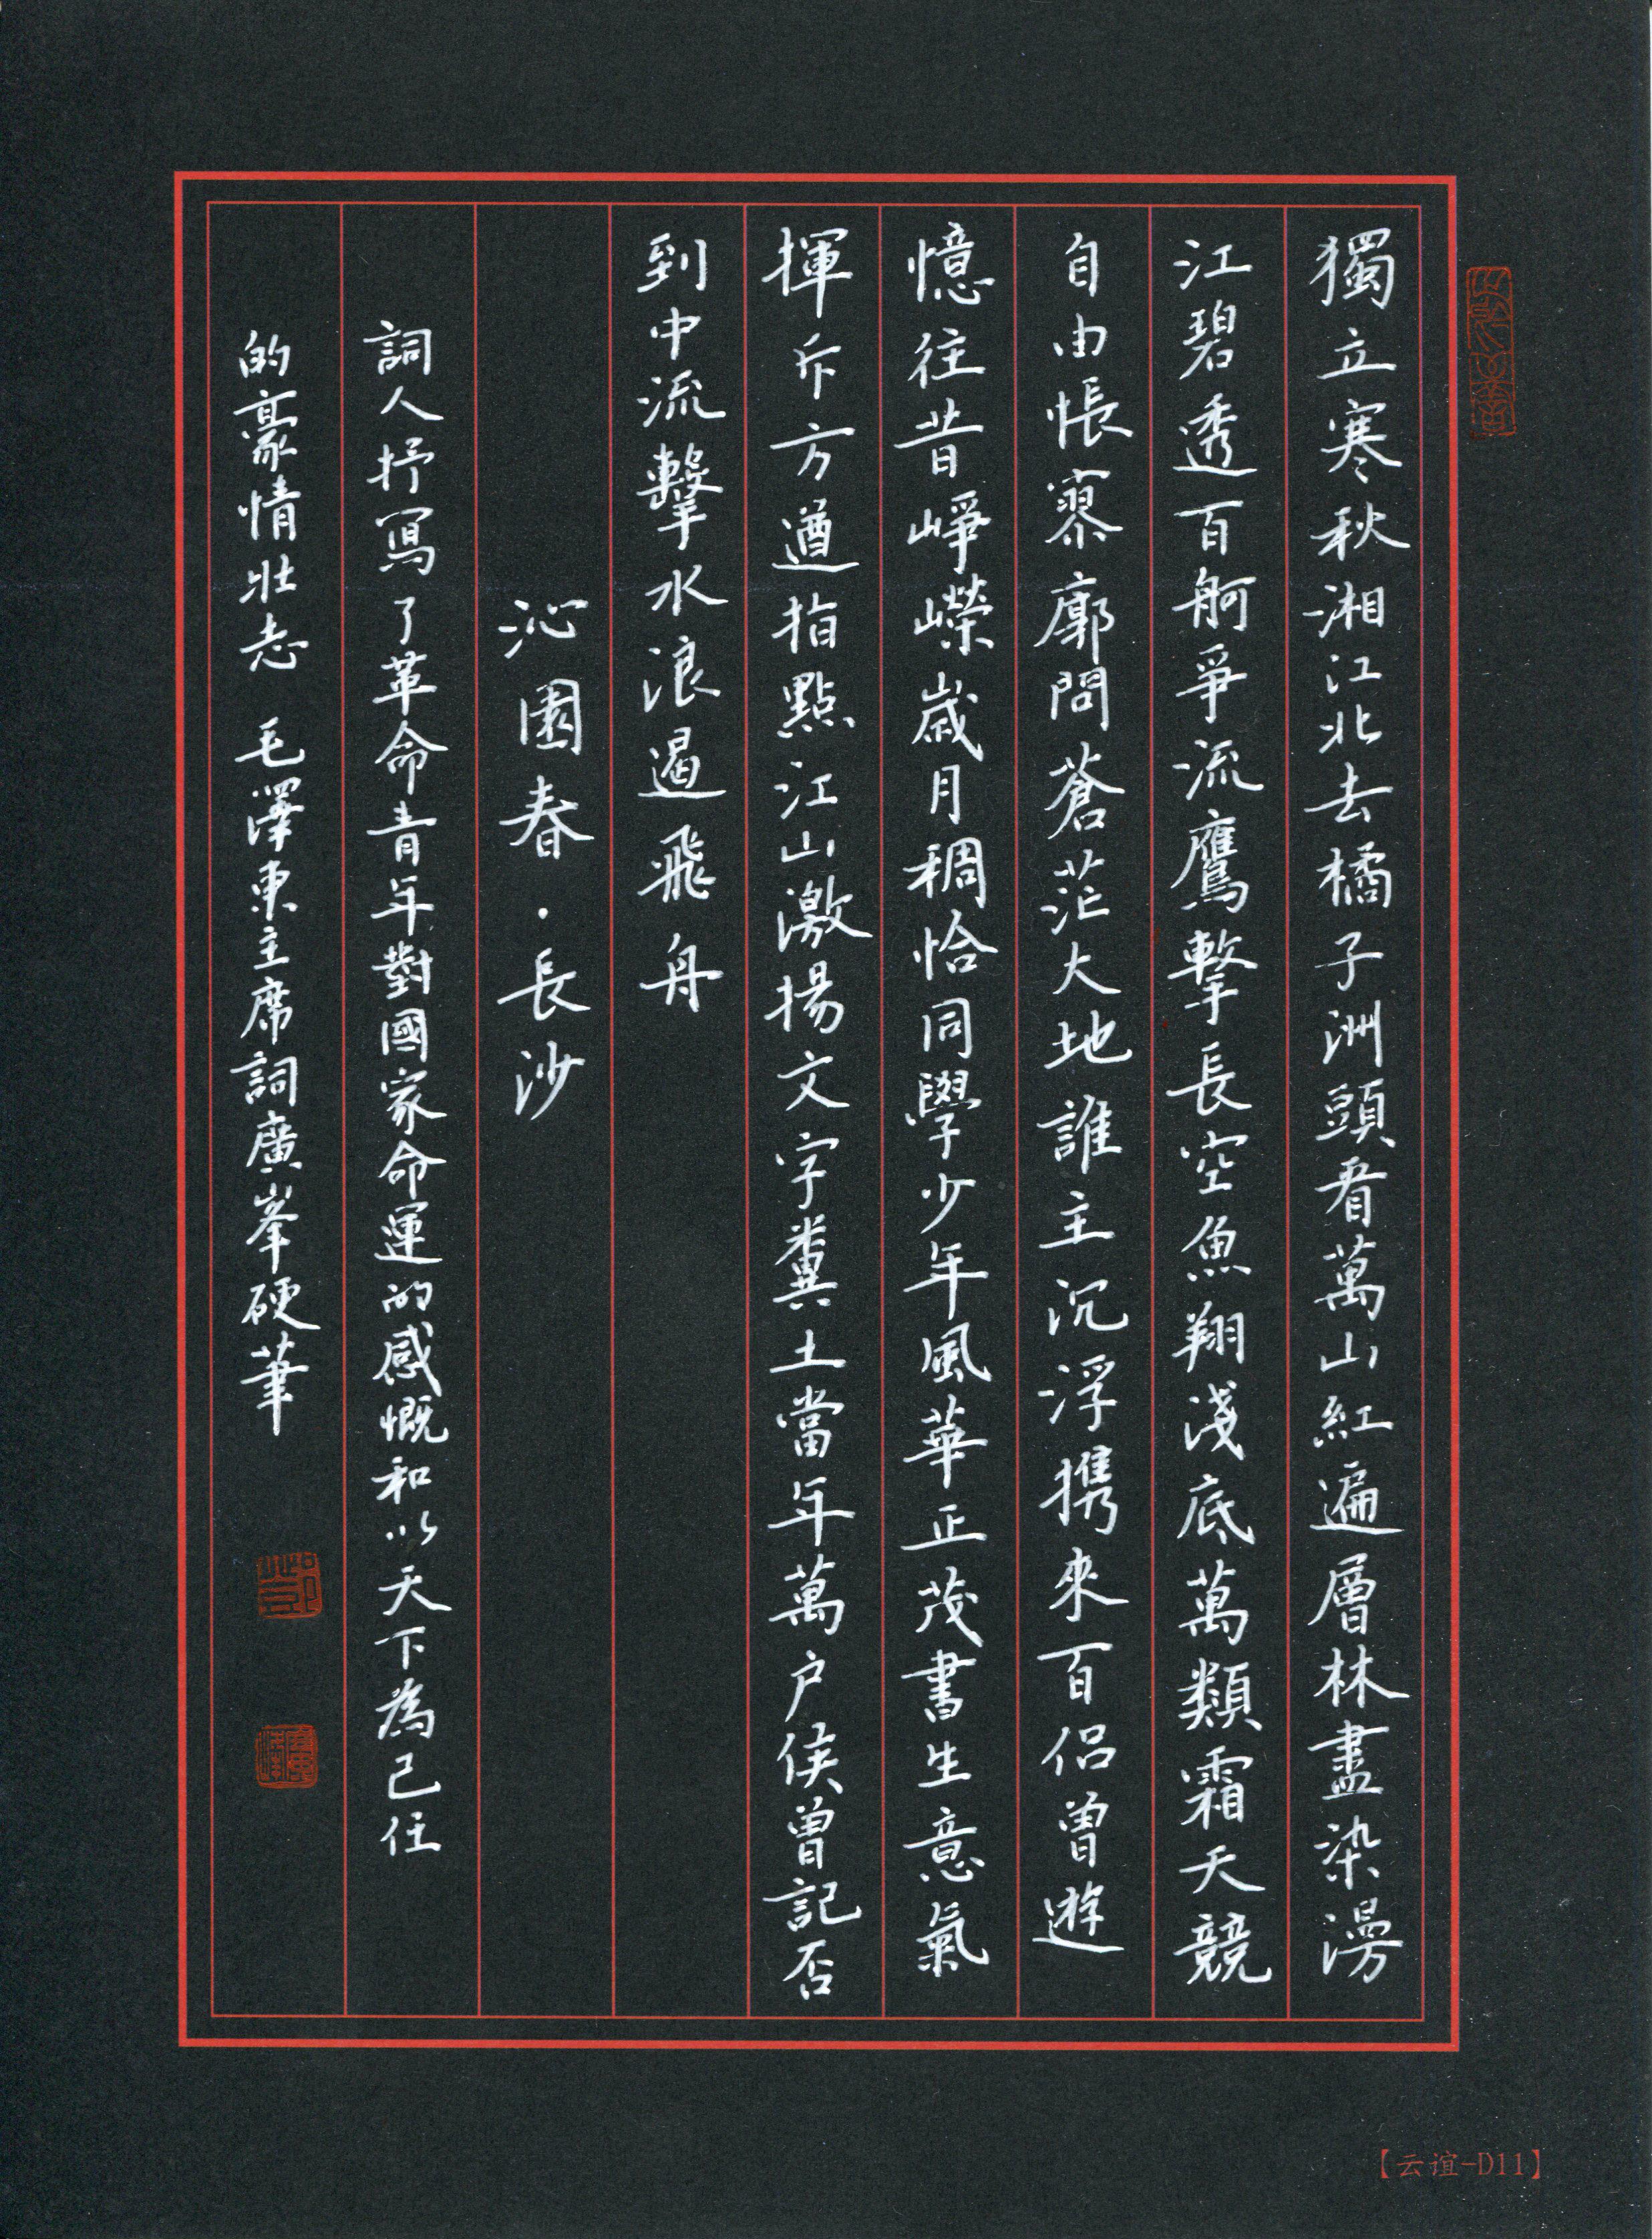 獨立寒秋湘江北去橘子洲頭看萬山紅遍層林盡染漫
江碧透百舸爭流鷹擊長空魚翔淺底萬類霜天競
自由悵寥廓問蒼茫大地誰主沉浮攜來百侶曾遊
憶往昔崢嶸歲月稠恰同學少年風華正茂書生意氣
揮斥方遒指點江山激揚文字糞土當年萬户侯曾記否
到中流擊水浪遏飛舟
沁園春·長沙
詞人抒寫了革命青年對國家命運的感慨和以天下為己任
的豪情壯志 毛澤東主席詞廣峯硬筆
【云谊-D11】